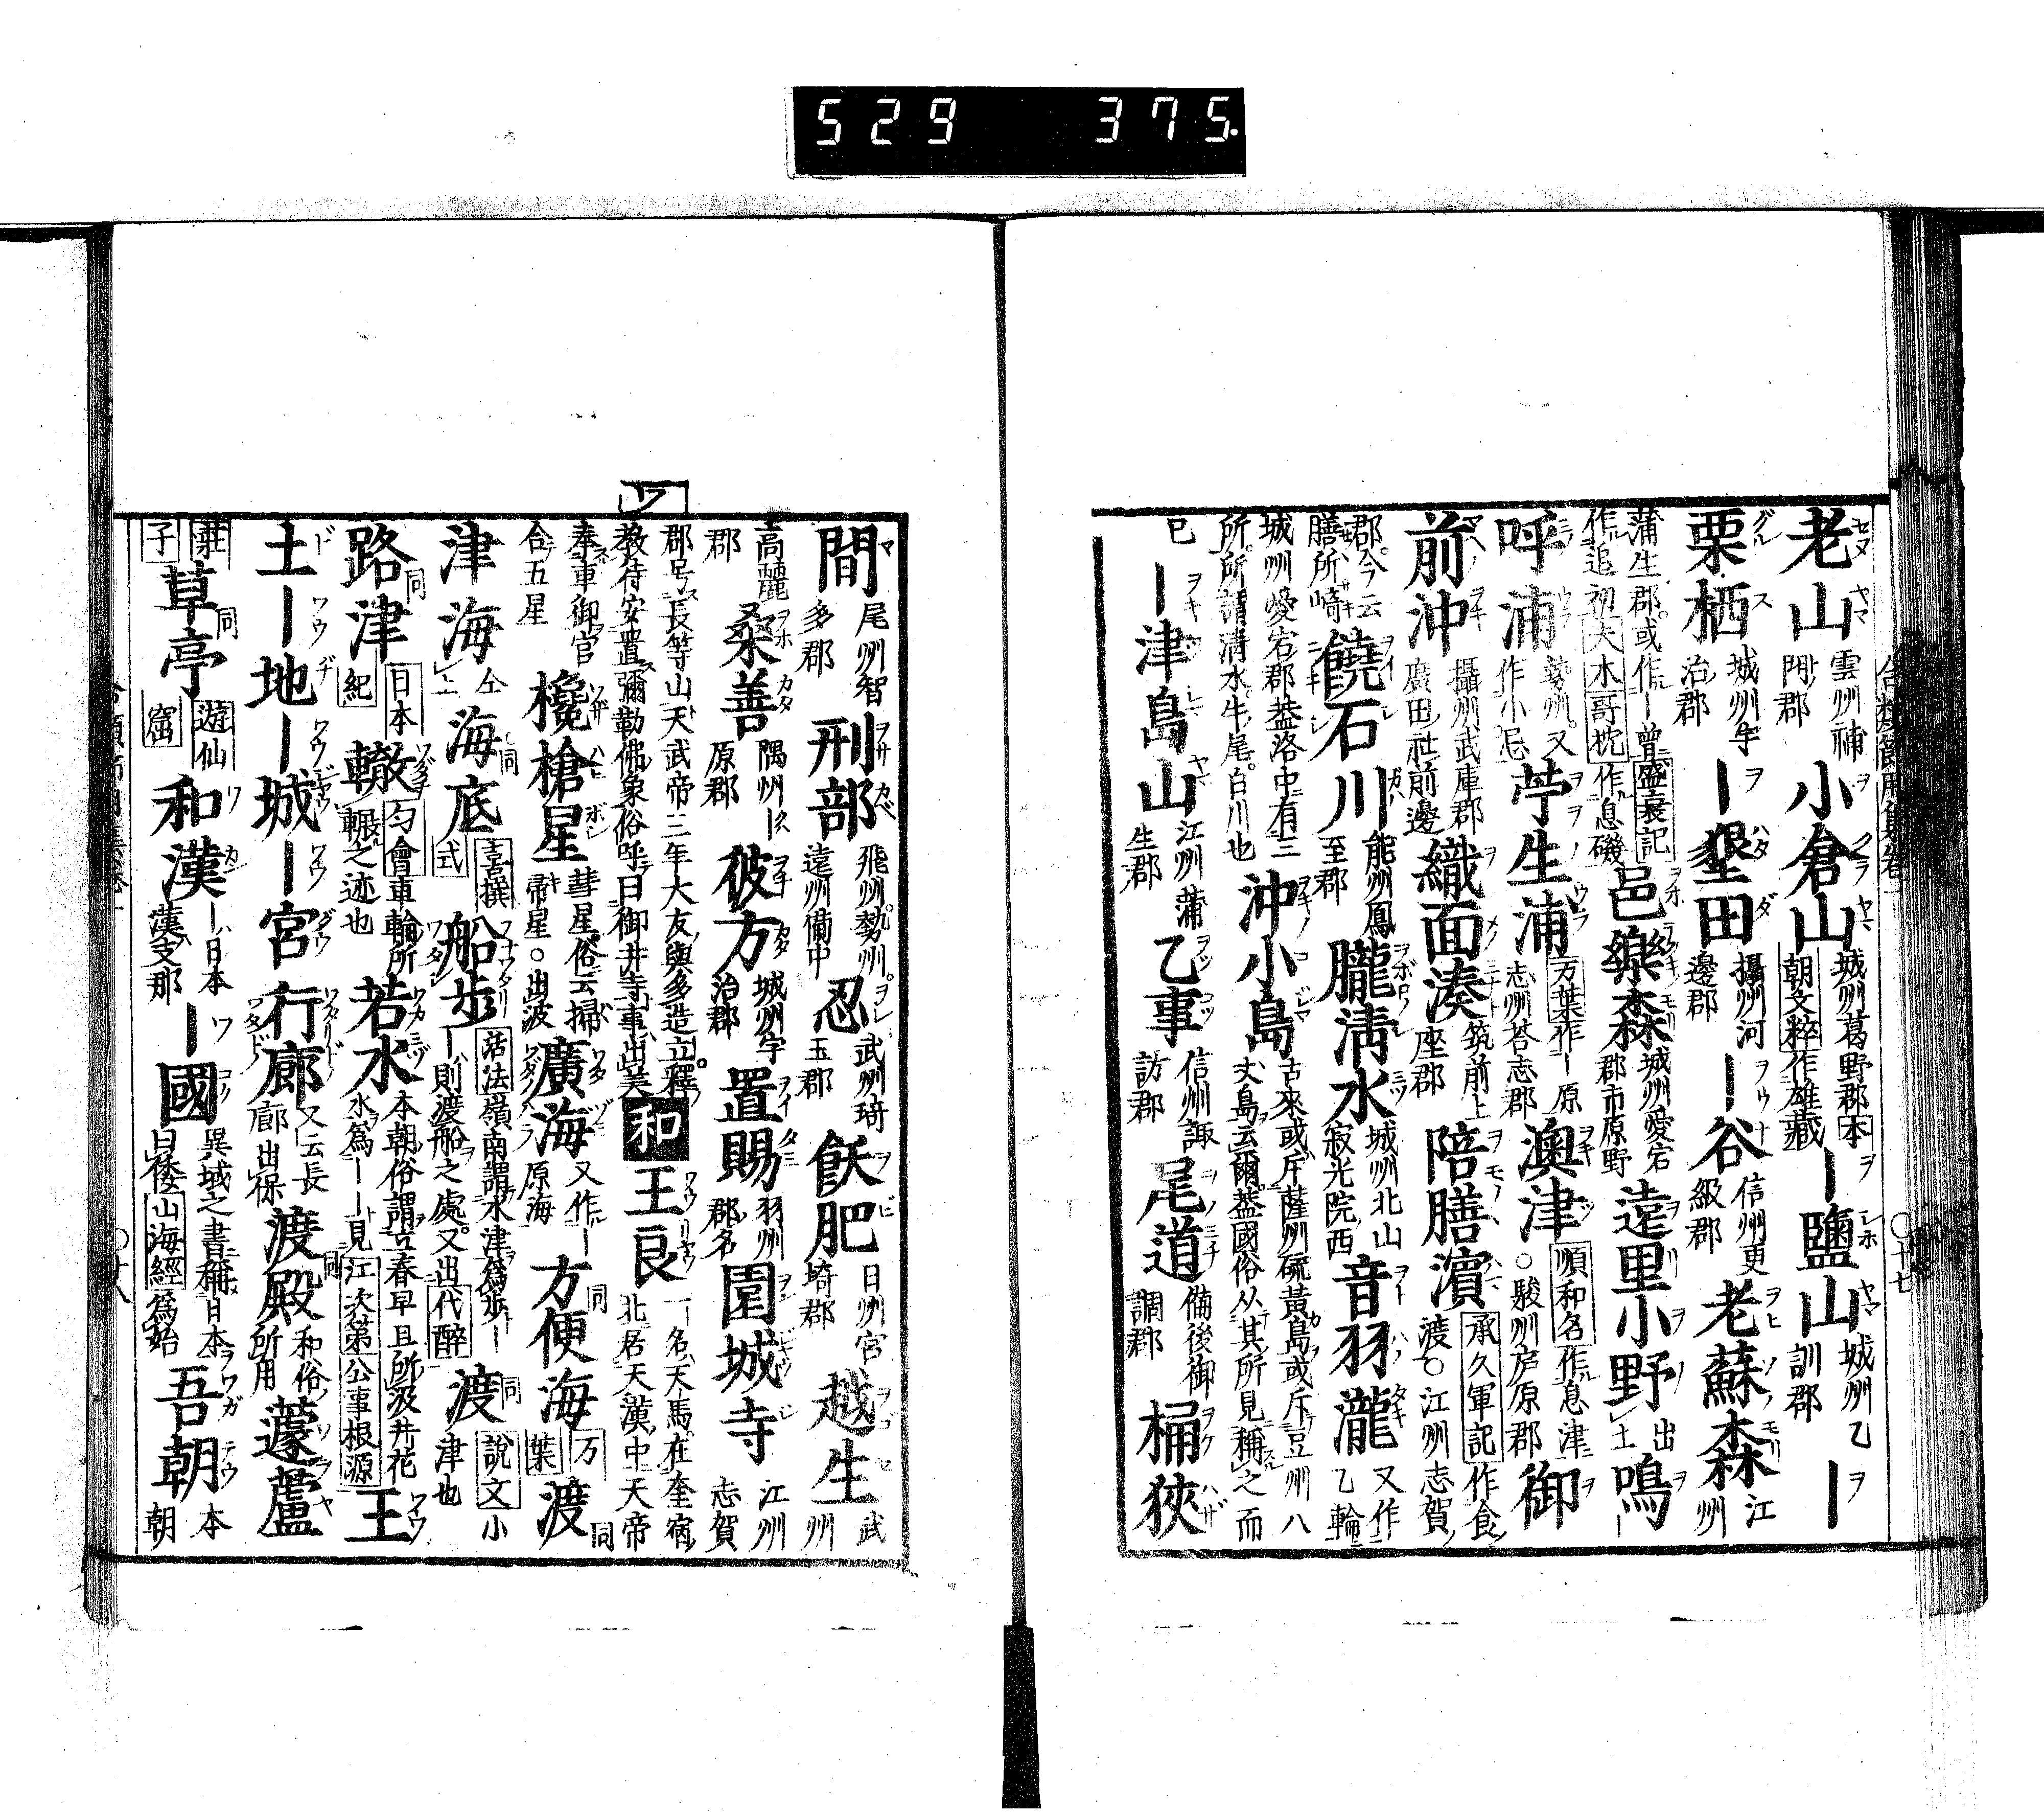 529 375.
老山 雲州補門郡 小倉山 城州葛野郡本朝文粹作雄藏 ー鹽山 城州乙訓郡 ー
栗栖 城州宇治郡 ー墾田 攝州河邊郡 ー谷 信州更級郡 老蘇森 江州
蒲生郡或作ー曾盛衰記作追初夫木哥枕作息磯 邑樂森 城州愛宕郡市原野 遠里小野 出土 鳴ー
呼浦 勢州又作小忌 苧生浦 万葉作ー原志州荅志郡 澳津 順和名作息津○駿州庐原郡 御
前沖 攝州武庫郡廣田社前邊 織面湊 筑前上座郡 陪膳濱 承久軍記作食渡○江州志賀
郡今云膳所崎 饒石川 能州鳳至郡 朧淸水 城州北山寂光院西 音羽瀧 又作乙輪
城州愛宕郡蓋洛中有三所所謂淸水牛尾白川也 沖小島 古來或斥薩州硫黃島或斥豆州八丈島云爾蓋國俗从其所見稱之而
已 ー津島山 江州蒲生郡 乙事 信州諏訪郡 尾道 備後御調郡 桶狹
間 尾州智多郡 刑部 飛州勢州遠州備中 忍 武州琦玉郡 飫肥 日州宮埼郡 越生 武州
高麗郡 桑善 隅州ー原郡 彼方 城州宇治郡 置賜 羽州郡名 園城寺 江州志賀
郡号長等山天武帝三年大友與多造立釋教待安置彌勒佛象俗呼曰御井寺事出美 和 王良 一名天馬在奎宿北居天漢中天帝
奉車御官合五星 欃槍星 彗星俗云掃帚星○出波 廣海 又作ー原海 方便海 同万葉 渡 同
津海 仝上 海底 同喜撰式 船步 活法嶺南謂水津爲步ー則渡船之處又出代醉 渡 同說文小津也
路津 同日本紀 轍 勻會車輪所輾之迹也 若水 本朝俗謂立春早旦所汲井花水爲ーー見江次第公事根源 王
土 ー地 ー城 ー宮 行廊 又云長廊出保 渡殿 同和俗所用 蘧蘆
莊子 草亭 同遊仙窟 和漢 ー日本漢支那 ー國 異域之書稱日本曰倭山海經爲始 吾朝 本朝